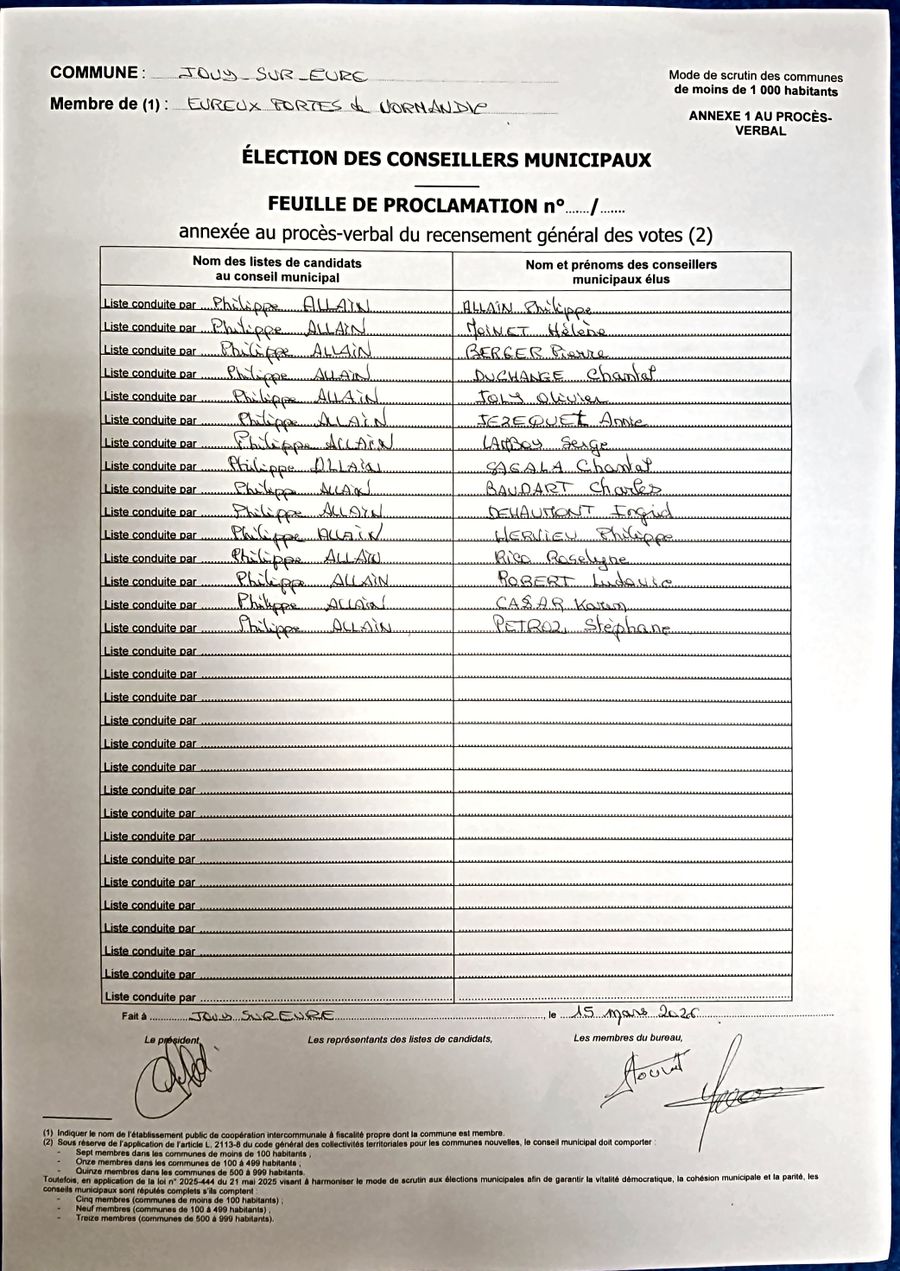 COMMUNE : JOUY-SUR-EURE
Mode de scrutin des communes
de moins de 1 000 habitants
Membre de (1) : EUREUX PORTES de NORMANDIE
ANNEXE 1 AU PROCÈS-
VERBAL
ÉLECTION DES CONSEILLERS MUNICIPAUX
FEUILLE DE PROCLAMATION n°....../......
annexée au procès-verbal du recensement général des votes (2)
Nom des listes de candidats
au conseil municipal
Nom et prénoms des conseillers
municipaux élus
Liste conduite par Philippe ALLAIN ALLAIN Philippe
Liste conduite par Philippe ALLAIN MOINET Hélène
Liste conduite par Philippe ALLAIN BERGER Pierre
Liste conduite par Philippe ALLAIN DUCHANGE Chantal
Liste conduite par Philippe ALLAIN JOLY Olivier
Liste conduite par Philippe ALLAIN JEZEQUEL Annie
Liste conduite par Philippe ALLAIN LAMBOY Serge
Liste conduite par Philippe ALLAIN SAGALA Chantal
Liste conduite par Philippe ALLAIN BAUDART Charles
Liste conduite par Philippe ALLAIN DEHAUMONT Ingrid
Liste conduite par Philippe ALLAIN HERVIEU Philippe
Liste conduite par Philippe ALLAIN RICO Roselyne
Liste conduite par Philippe ALLAIN ROBERT Ludovic
Liste conduite par Philippe ALLAIN CASAR Karen
Liste conduite par Philippe ALLAIN PETROZ Stéphane
Liste conduite par
Liste conduite par
Liste conduite par
Liste conduite par
Liste conduite par
Liste conduite par
Liste conduite par
Liste conduite par
Liste conduite par
Liste conduite par
Liste conduite par
Liste conduite par
Liste conduite par
Liste conduite par
Liste conduite par
Liste conduite par
Fait à JOUY SUR EURE, le 15 mars 2026
Le président, Les représentants des listes de candidats, Les membres du bureau,
(1) Indiquer le nom de l'établissement public de coopération intercommunale à fiscalité propre dont la commune est membre.
(2) Sous réserve de l'application de l'article L. 2113-8 du code général des collectivités territoriales pour les communes nouvelles, le conseil municipal doit comporter :
- Sept membres dans les communes de moins de 100 habitants ;
- Onze membres dans les communes de 100 à 499 habitants ;
- Quinze membres dans les communes de 500 à 999 habitants.
Toutefois, en application de la loi n° 2025-444 du 21 mai 2025 visant à harmoniser le mode de scrutin aux élections municipales afin de garantir la vitalité démocratique, la cohésion municipale et la parité, les
conseils municipaux sont réputés complets s'ils comptent :
- Cinq membres (communes de moins de 100 habitants) ;
- Neuf membres (communes de 100 à 499 habitants) ;
- Treize membres (communes de 500 à 999 habitants).